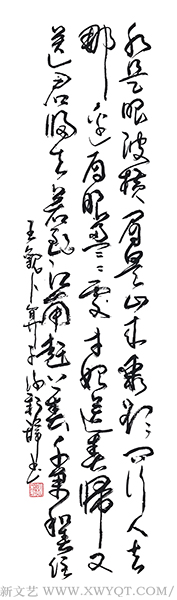 水是眼波横眉是山峰聚欲问行人去
那边眉眼盈盈处才始送春归又
送君归去若到江南赶上春千万和春住
王观卜算子 书
新文艺 WWW.XWYQT.COM/